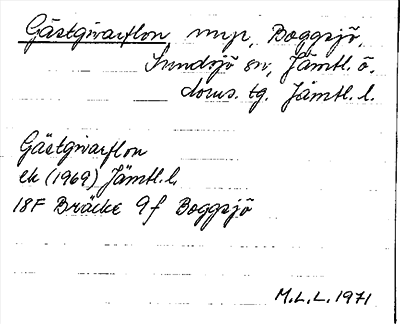 Gästgivarflon myr, Boggsjö,
Sundsjö sn, Jämtl. ö.
doms. tg. Jämtl. l.
Gästgivarflon
ek (1969) Jämtl. l.
18F Bräcke 9f Boggsjö
M.L.L. 1971